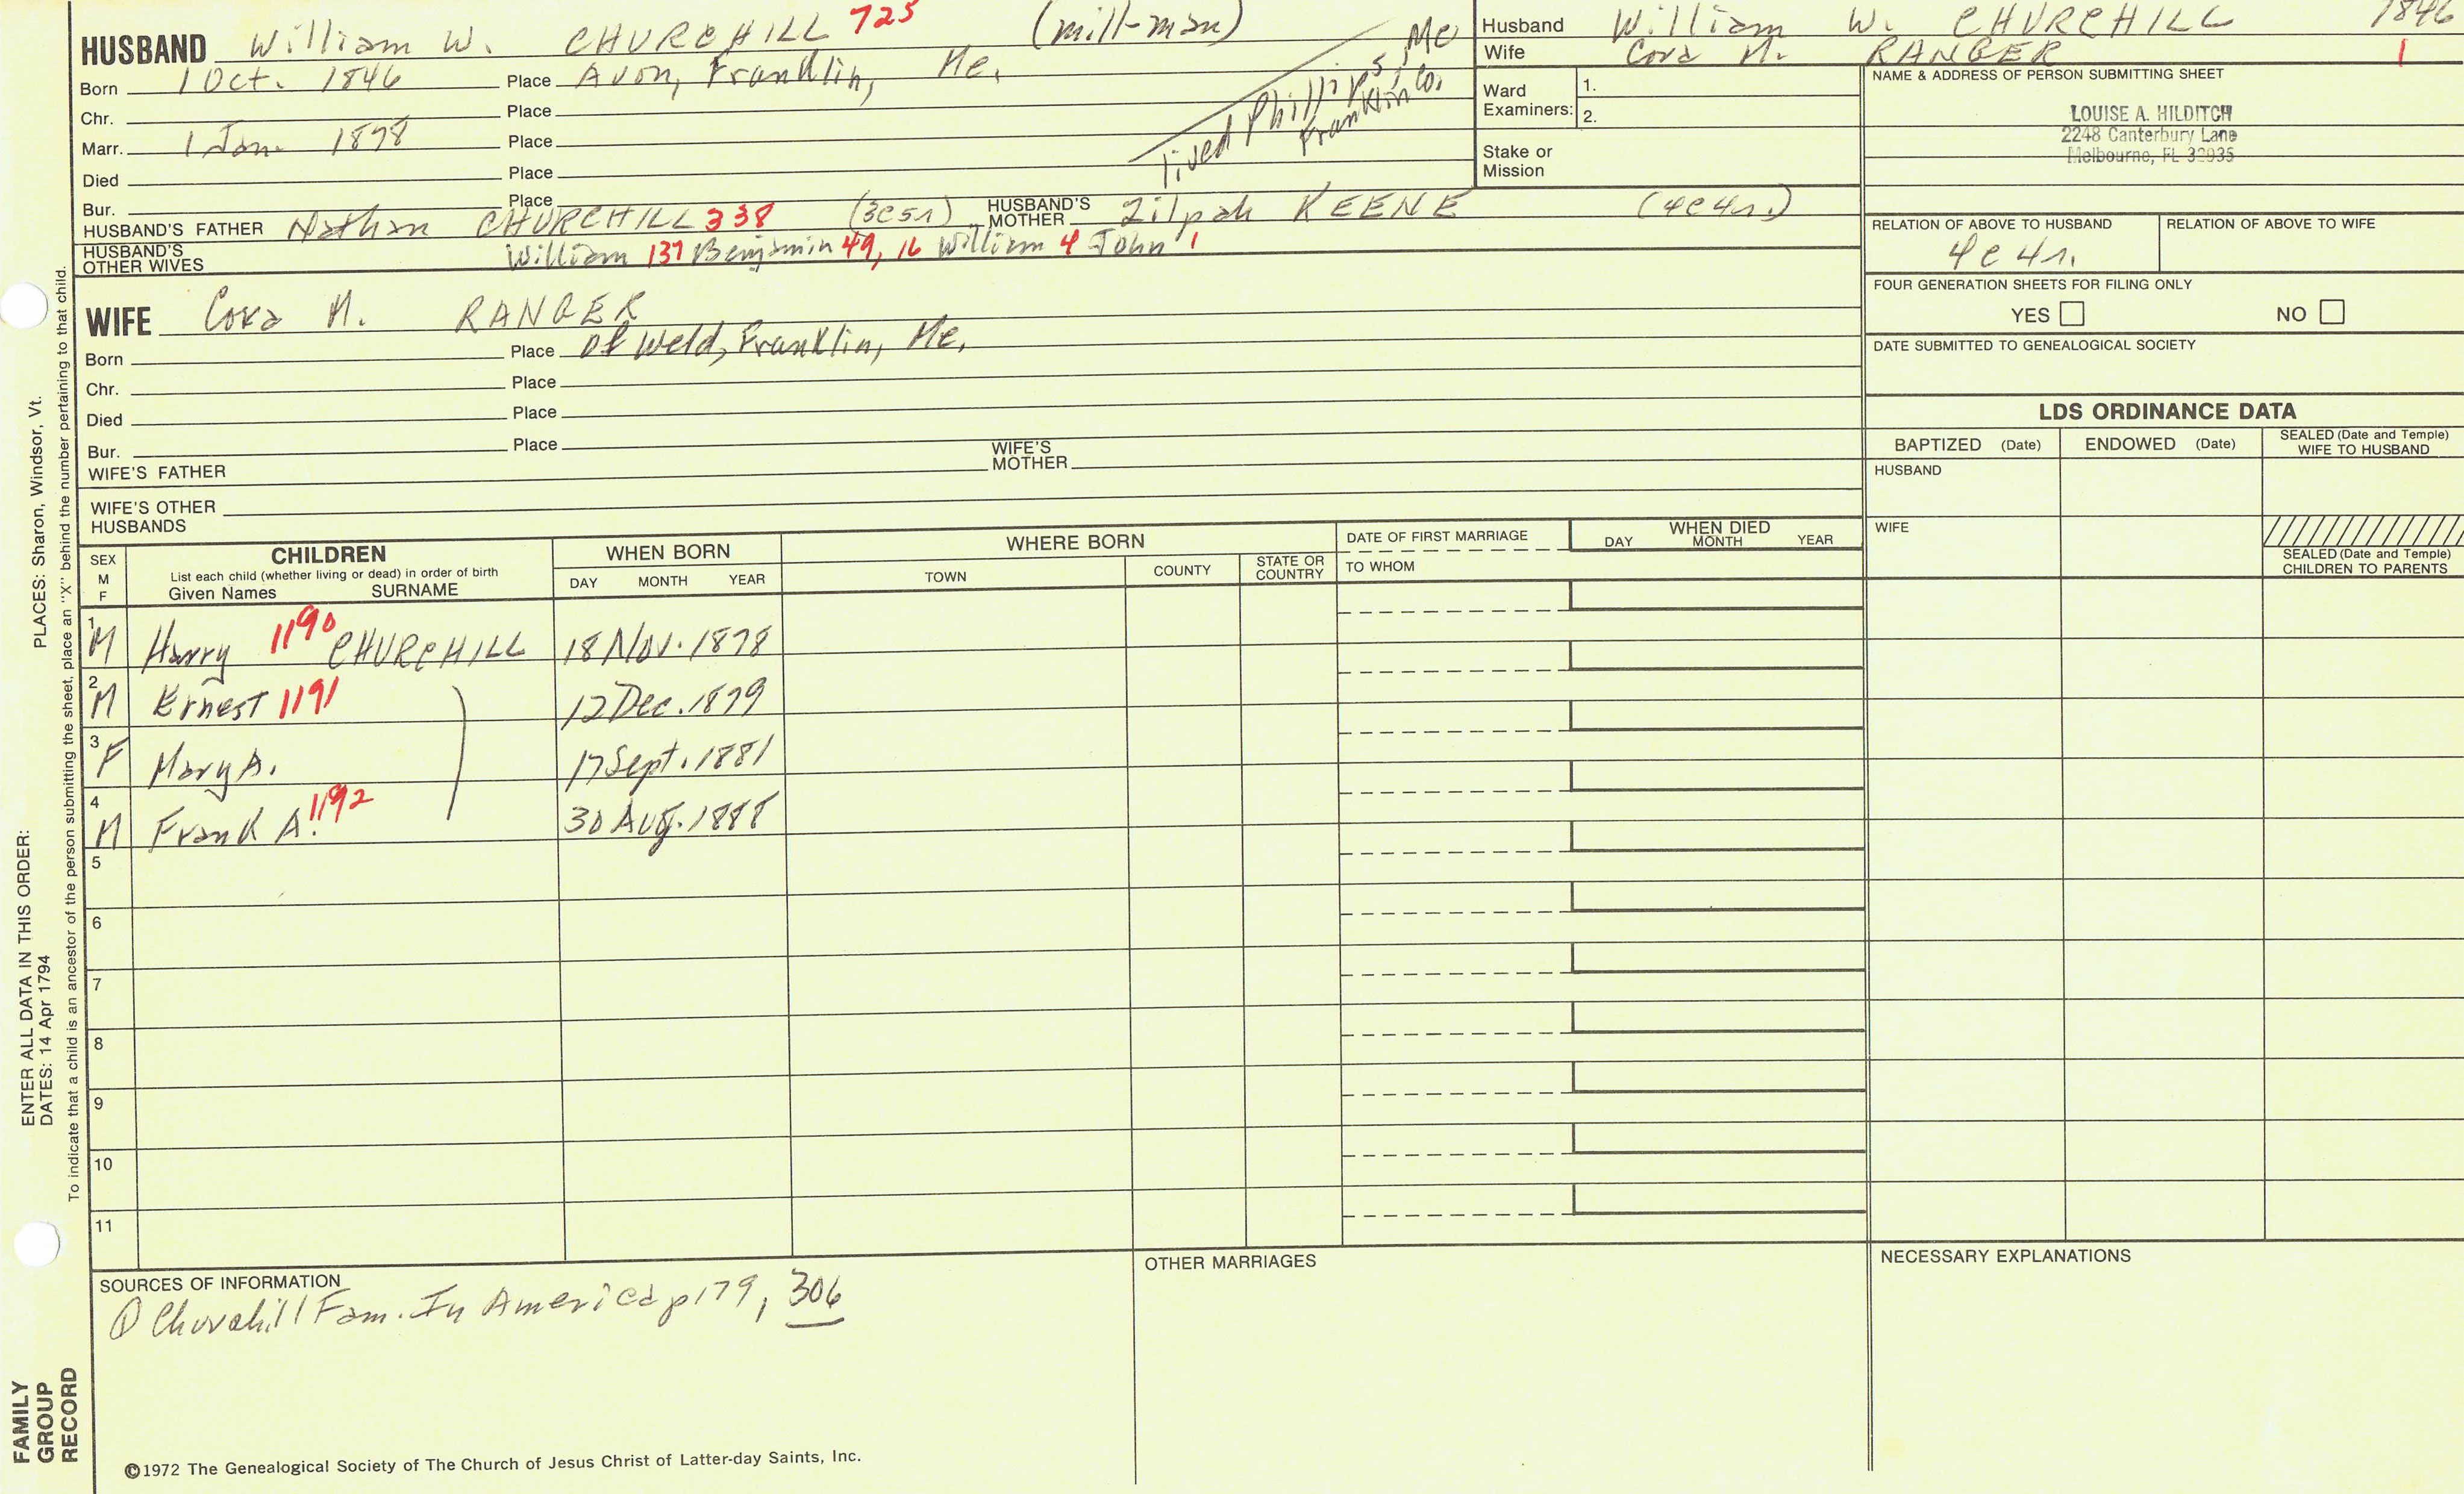 HUSBAND William W. CHURCHILL 725 (mill-man)
Born 1 Oct. 1846 Place Avon, Franklin, Me.
Chr. Place
Marr. 1 Jan. 1878 Place
Died Place
Bur. Place
lived Phillips, Me
Franklin Co.
HUSBAND'S FATHER Nathan CHURCHILL 338 (3c5r) HUSBAND'S MOTHER Zilpah KEENE (4c4r)
HUSBAND'S OTHER WIVES William 137 Benjamin 49, 16 William 4 John 1
WIFE Cora M. RANGER
Born Place of Weld, Franklin, Me.
Chr. Place
Died Place
Bur. Place
WIFE'S FATHER WIFE'S MOTHER
WIFE'S OTHER HUSBANDS
Husband William W. CHURCHILL 1846
Wife Cora M. RANGER 1
Ward Examiners: 1.
2.
Stake or Mission
NAME & ADDRESS OF PERSON SUBMITTING SHEET
LOUISE A. HILDITCH
2248 Canterbury Lane
Melbourne, FL 32935
RELATION OF ABOVE TO HUSBAND RELATION OF ABOVE TO WIFE
4c4r.
FOUR GENERATION SHEETS FOR FILING ONLY
YES NO
DATE SUBMITTED TO GENEALOGICAL SOCIETY
LDS ORDINANCE DATA
BAPTIZED (Date) ENDOWED (Date) SEALED (Date and Temple) WIFE TO HUSBAND
HUSBAND
WIFE
SEALED (Date and Temple) CHILDREN TO PARENTS
SEX M F CHILDREN WHEN BORN WHERE BORN DATE OF FIRST MARRIAGE WHEN DIED
List each child (whether living or dead) in order of birth
Given Names SURNAME DAY MONTH YEAR TOWN COUNTY STATE OR COUNTRY TO WHOM DAY MONTH YEAR
1 M Harry 1190 CHURCHILL 18 Nov. 1878
2 M Ernest 1191 12 Dec. 1879
3 F Mary A. 17 Sept. 1881
4 M Frank A. 1192 30 Aug. 1888
5
6
7
8
9
10
11
SOURCES OF INFORMATION
① Churchill Fam. In America p179, 306
OTHER MARRIAGES
NECESSARY EXPLANATIONS
©1972 The Genealogical Society of The Church of Jesus Christ of Latter-day Saints, Inc.
PLACES: Sharon, Windsor, Vt.
ENTER ALL DATA IN THIS ORDER:
DATES: 14 Apr 1794
To indicate that a child is an ancestor of the person submitting the sheet, place an "X" behind the number pertaining to that child.
FAMILY
GROUP
RECORD